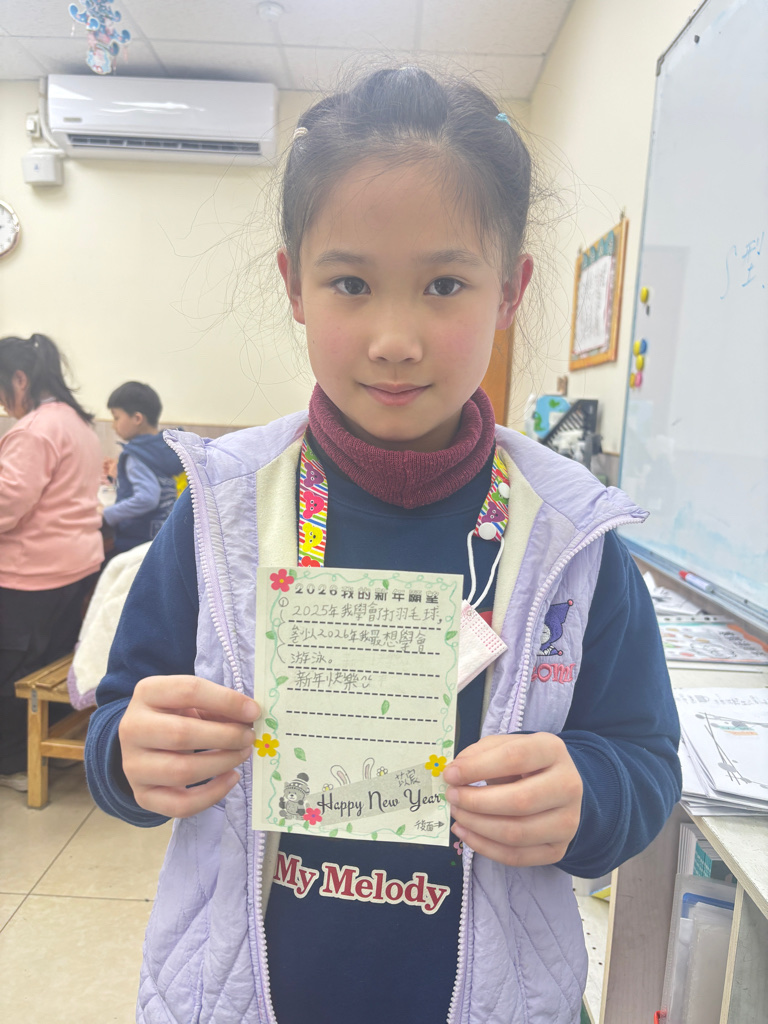 2026我的新年願望
2025年我學會打羽毛球,
所以2026年我最想學會
游泳。
新年快樂
Happy New Year
後面
My Melody
型